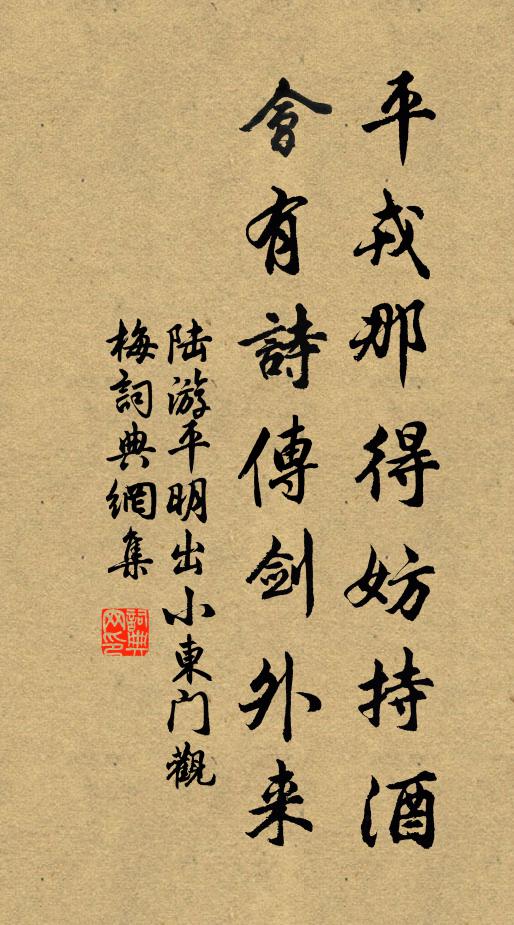 平戎那得妨持酒
會有詩傳剑外来
陆游平明出小東门觀
梅詞典網集
詞典
网印